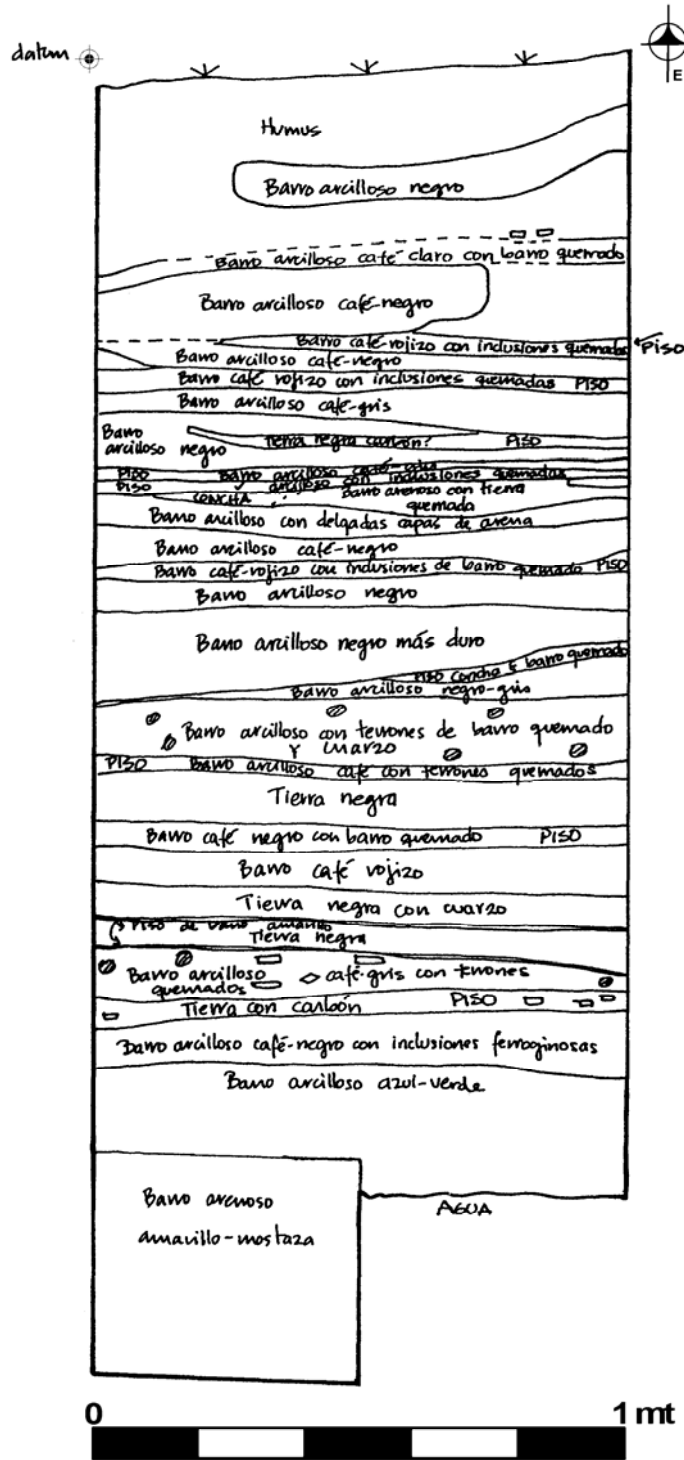 datum
E
Humus
Barro arcilloso negro
Barro arcilloso café claro con barro quemado
Barro arcilloso café-negro
Barro café-rojizo con inclusiones quemadas
PISO
Barro arcilloso café-negro
Barro café rojizo con inclusiones quemadas PISO
Barro arcilloso café-gris
Barro
arcilloso negro
Tierra negra carbón? PISO
PISO Barro arcilloso café-gris
PISO arcilloso con inclusiones quemadas
CONCHA Barro arenoso con tierra
quemada
Barro arcilloso con delgadas capas de arena
Barro arcilloso café-negro
Barro café-rojizo con inclusiones de barro quemado PISO
Barro arcilloso negro
Barro arcilloso negro más duro
PISO concha y barro quemado
Barro arcilloso negro-gris
Barro arcilloso con terrones de barro quemado
Y cuarzo
PISO Barro arcilloso café con terrones quemados
Tierra negra
Barro café negro con barro quemado PISO
Barro café rojizo
Tierra negra con cuarzo
Piso de barro amarillo
Tierra negra
Barro arcilloso café-gris con terrones
quemados
Tierra con carbón PISO
Barro arcilloso café-negro con inclusiones ferroginosas
Barro arcilloso azul-verde
Barro arenoso
amarillo-mostaza
AGUA
0 1 mt